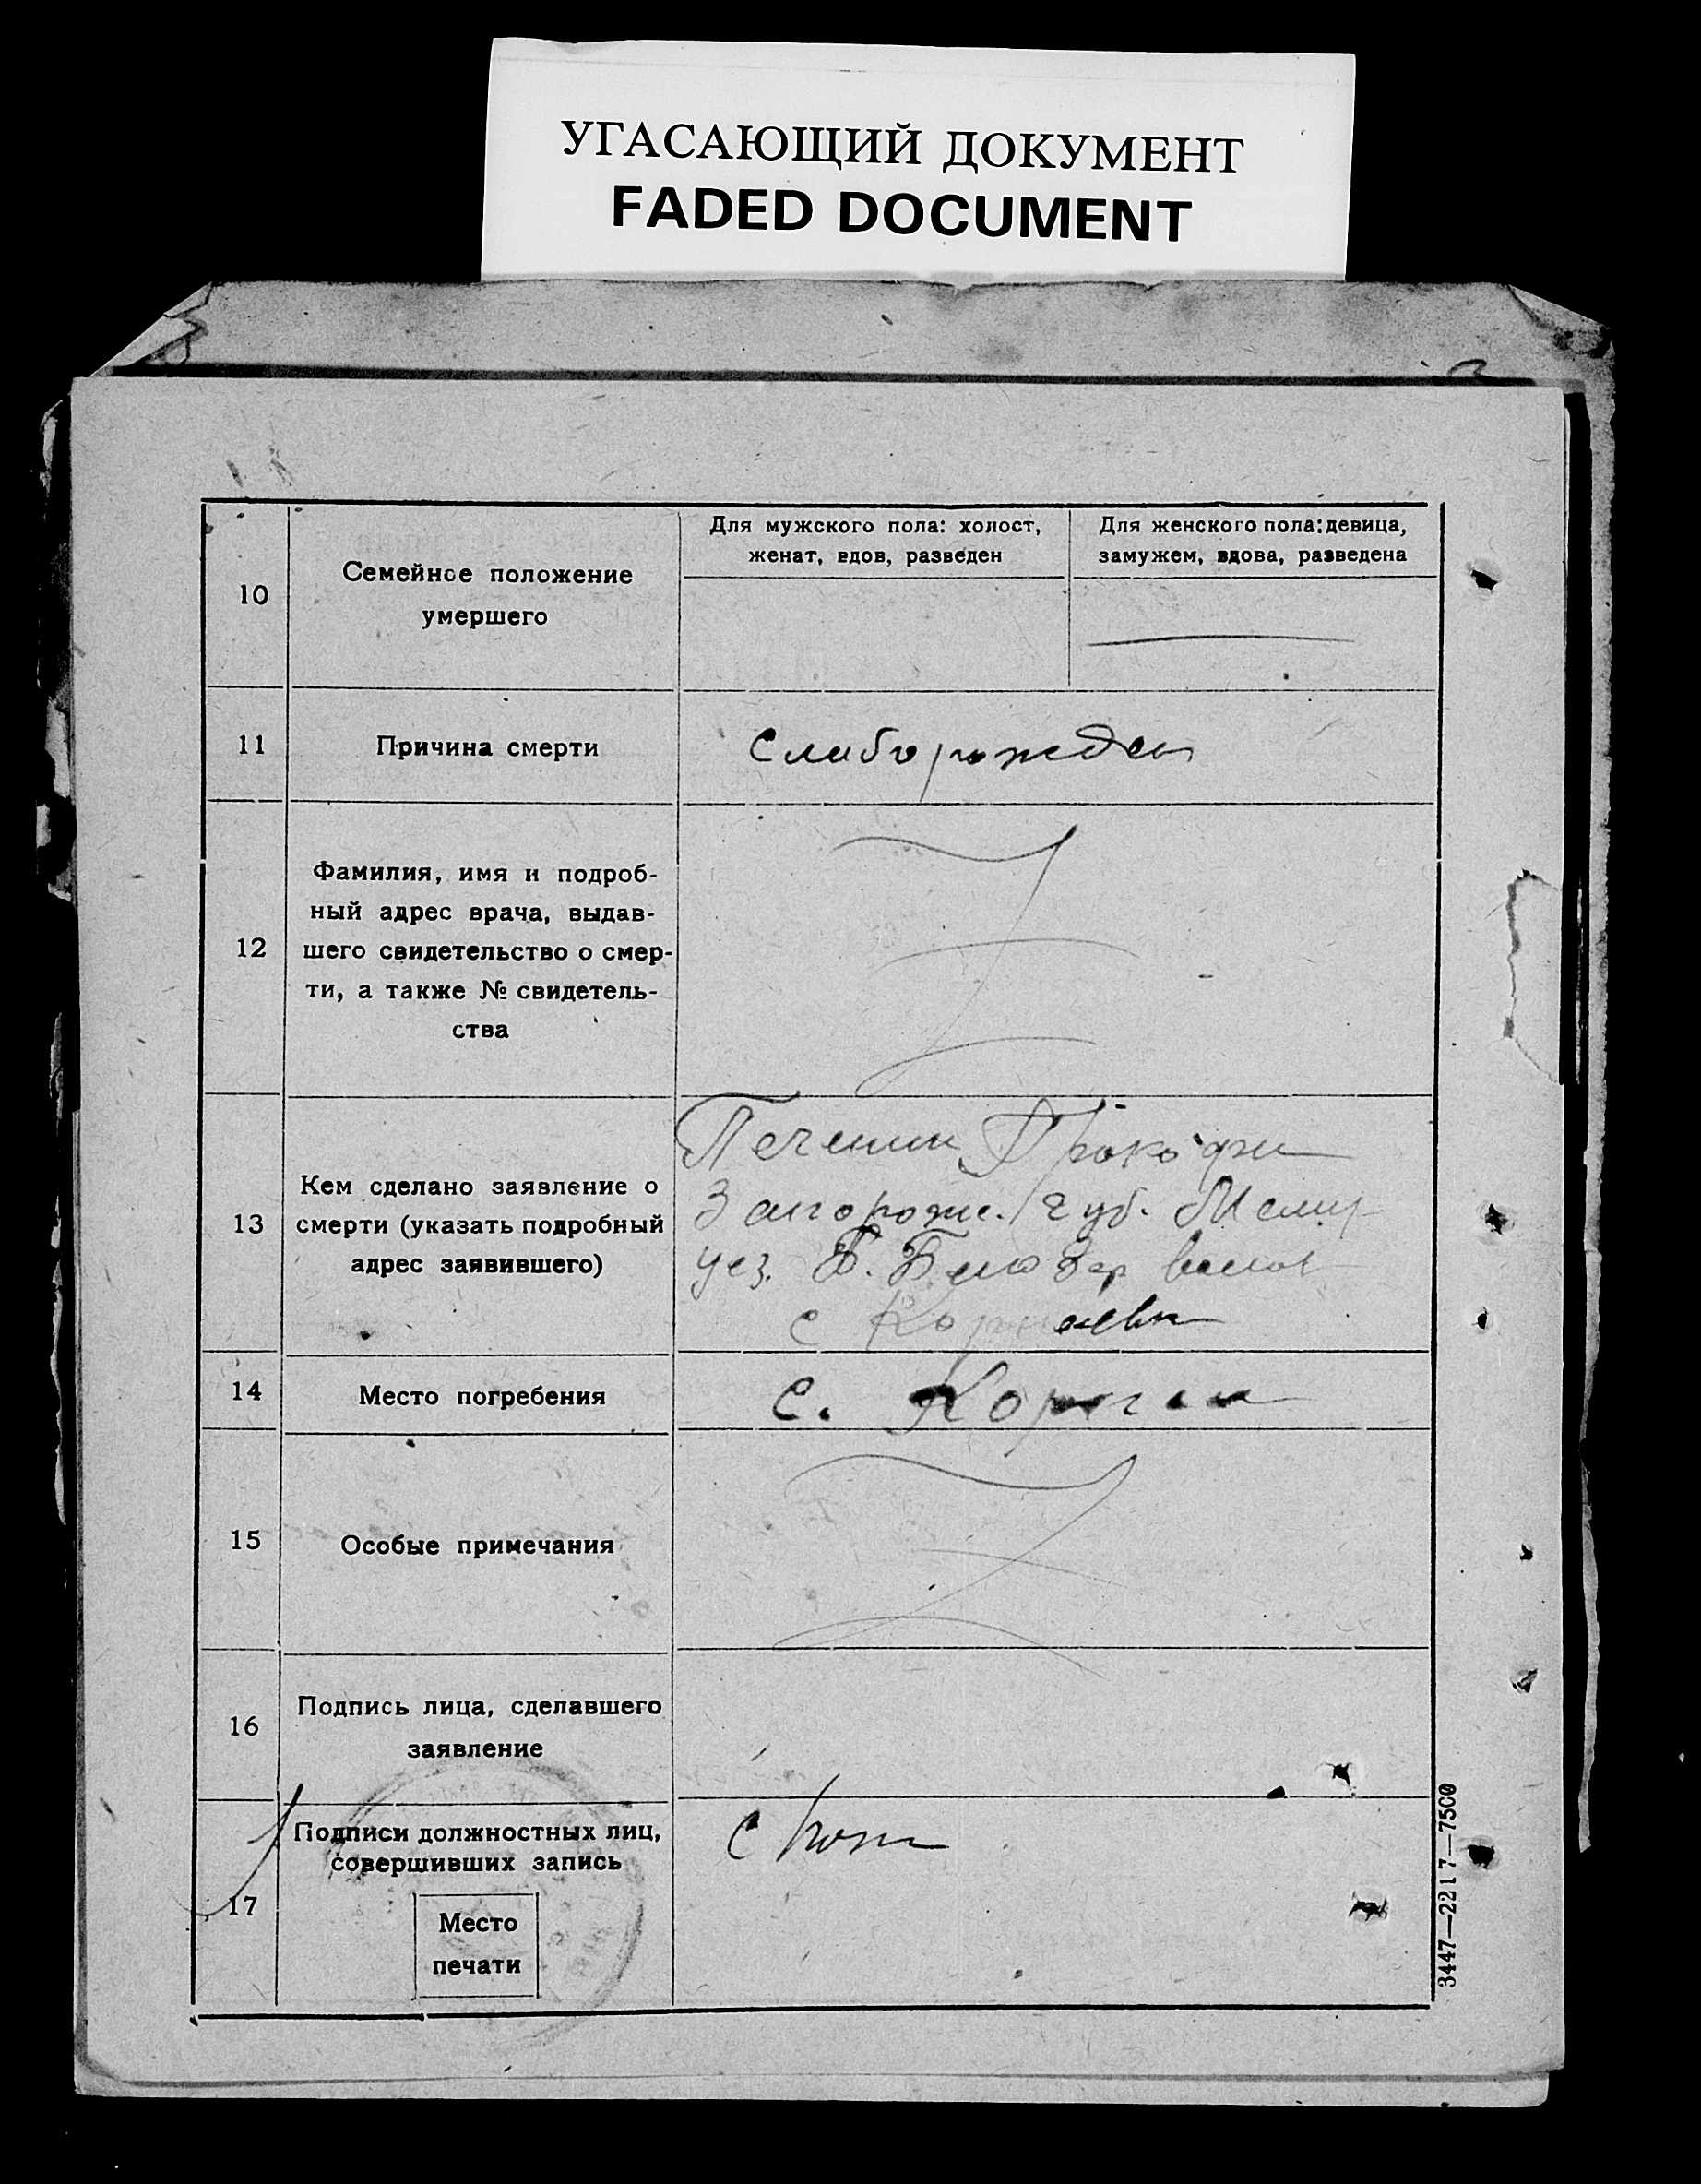 УГАСАЮЩИЙ ДОКУМЕНТ
FADED DOCUMENT
10
Семейное положение
умершего
Для мужского пола: холост,
женат, вдов, разведен
Для женского пола: девица,
замужем, вдова, разведена
11
Причина смерти
Слаборожден
12
Фамилия, имя и подроб-
ный адрес врача, выдав-
шего свидетельство о смер-
ти, а также № свидетель-
ства
13
Кем сделано заявление о
смерти (указать подробный
адрес заявившего)
Прокофи
Запорожс. Губ. Мелит
уез. Б. Белозер волос
с
14
Место погребения
с.
15
Особые примечания
16
Подпись лица, сделавшего
заявление
17
Подписи должностных лиц,
совершивших запись
Место
печати
3447—2217—7500